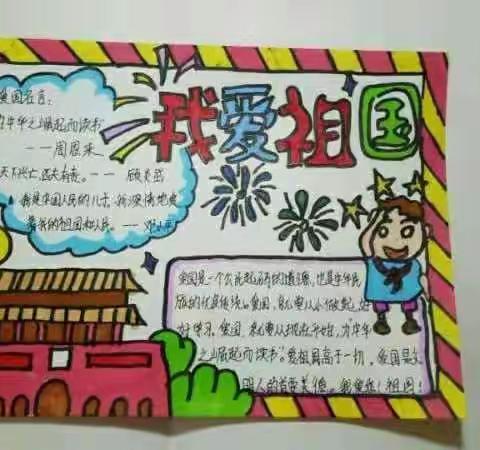 我爱祖国
爱国名言:
为中华之崛起而读书
——周恩来
天下兴亡,匹夫有责。——顾炎武
我是中国人民的儿子,我深情地爱
着我的祖国和人民。——邓小平
爱国是一个公民起码的道德,也是中华民
族的优良传统。爱国,就要从小做起,好
好学习。爱国,就要从现在开始,为"中华
之崛起而读书"。爱祖国高于一切,爱国是文
明人的首要美德。我爱你!祖国!